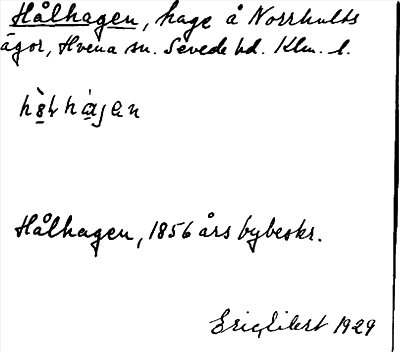 Hålhagen, hage å Norrhults
ägor, Hvena sn. Sevede hd. Klm. l.
Hålhagen, 1856 års bybeskr.
Eric Eilert 1929